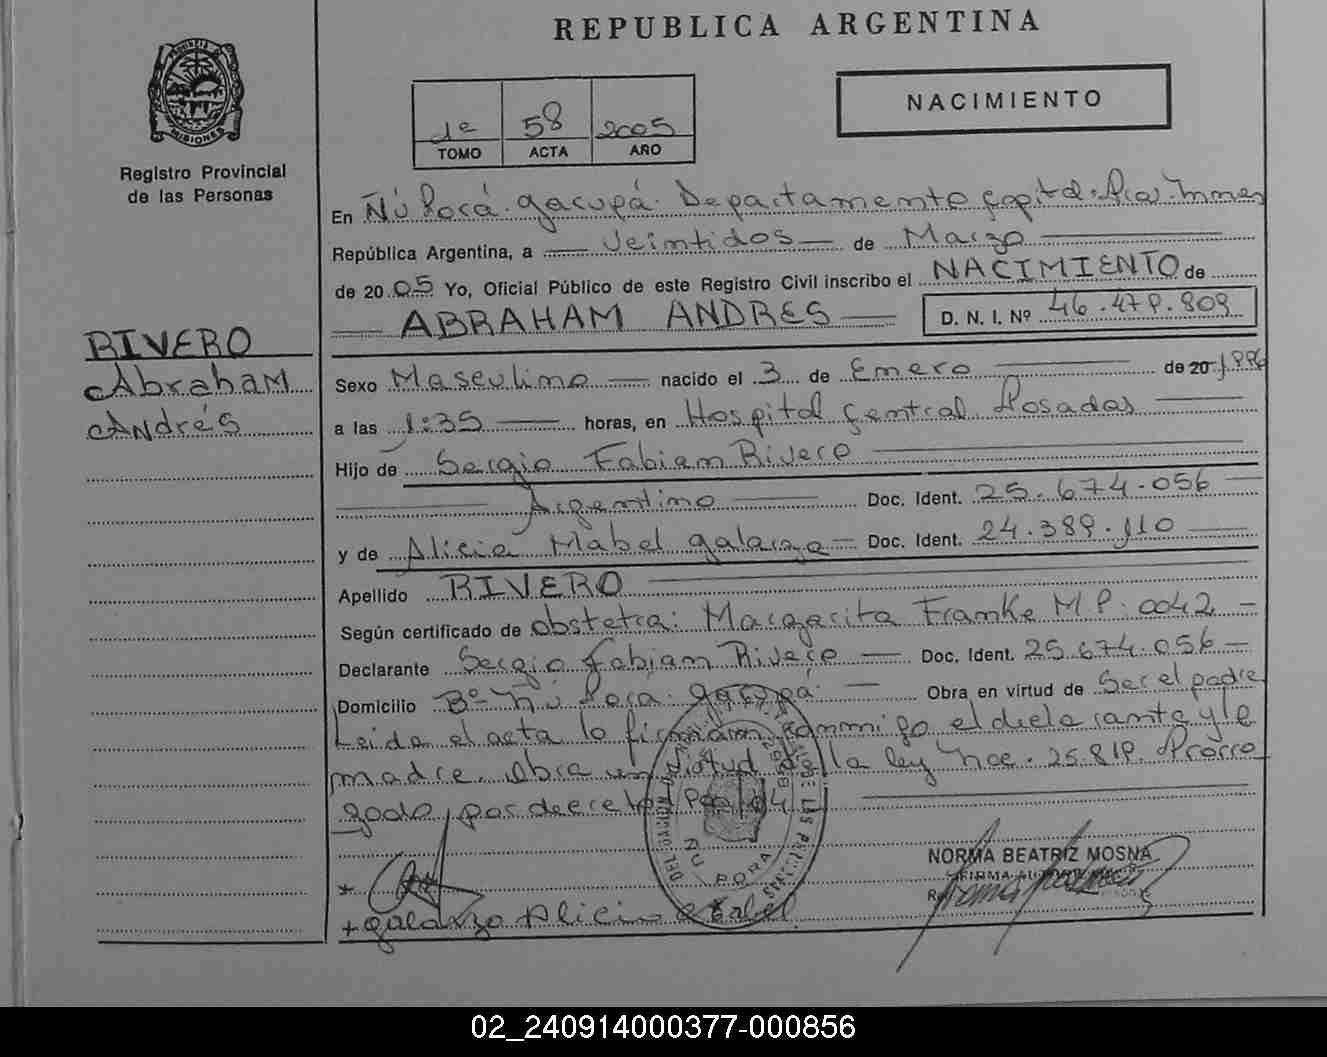 REPUBLICA ARGENTINA
PROVINCIA DE MISIONES
Registro Provincial
de las Personas
1º 58 2005
TOMO ACTA AÑO
NACIMIENTO
En Ñú Porá. Garupá. Departamento Capital. Pcia. Mnes
República Argentina, a veintidos de Marzo
de 2005 Yo, Oficial Público de este Registro Civil inscribo el NACIMIENTO de
ABRAHAM ANDRES D. N. I. Nº 46.479.809
RIVERO
Abraham
Andrés
Sexo Masculino nacido el 3 de Enero de 20 1996
a las 1:35 horas, en Hospital Central Posadas
Hijo de Sergio Fabian Rivero
Argentino Doc. Ident. 25.674.056
y de Alicia Mabel Galarza Doc. Ident. 24.389.110
Apellido RIVERO
Según certificado de obstetra: Margarita Franke M.P: 0042
Declarante Sergio Fabian Rivero Doc. Ident. 25.674.056
Domicilio Bº Ñú Porá. Garupá. Obra en virtud de Ser el padre
Leida el acta lo firman conmigo el declarante y la
madre. Obra en virtud de la ley Nro. 25.819. Prorro
gado, por decreto
ÑU PORA
NORMA BEATRIZ MOSNA
+ Galarza Alicia Mabel
02_240914000377-000856